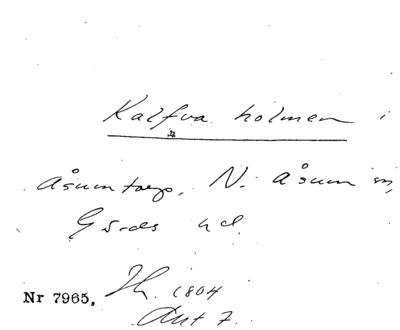 Kalfva holmen i
Åsumtorp, N. Åsum sn,
Gärds hd.
Nr 7965, 1804
Akt 7.